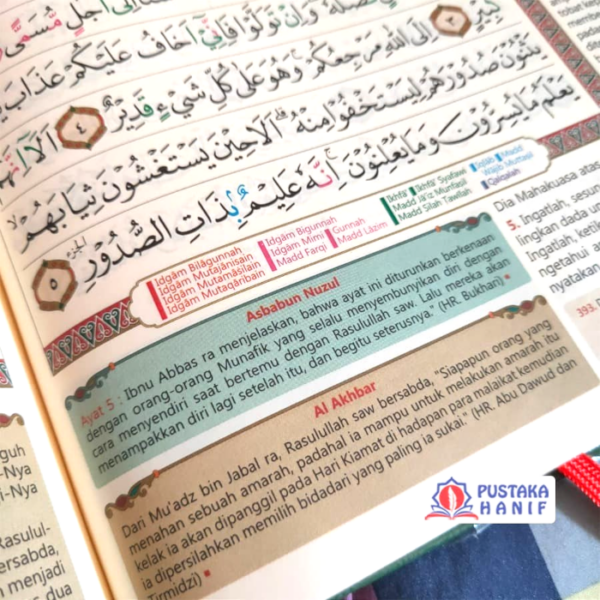 أَجَلٍ مُّسَمًّى
وَإِنْ تَوَلَّوْا فَإِنِّيٓ أَخَافُ عَلَيْكُمْ عَذَابَ
كَبِيْرٍ ٣ اِلَى اللّٰهِ مَرْجِعُكُمْ وَهُوَ عَلٰى كُلِّ شَيْءٍ قَدِيْرٌ ٤ اَلَآ اِنَّهُمْ
يَثْنُوْنَ صُدُوْرَهُمْ لِيَسْتَخْفُوْا مِنْهُ اَلَا حِيْنَ يَسْتَغْشُوْنَ ثِيَابَهُمْ
يَعْلَمُ مَا يُسِرُّوْنَ وَمَا يُعْلِنُوْنَ اِنَّهٗ عَلِيْمٌۢ بِذَاتِ الصُّدُوْرِ ٥
Idgām Bilāgunnah
Idgām Mutajānisain
Idgām Mutamāṡilain
Idgām Mutaqāribain
Idgām Bigunnah
Idgām Mimi
Gunnah
Madd Farqi
Madd Lāzim
Ikhfā'
Ikhfā' Syafawi
Madd Jā'iz Munfaṣil
Madd Ṣilah Ṭawīlah
Iqlāb
Madd Wājib Muttaṣil
Qalqalah
Asbabun Nuzul
Ayat 5 : Ibnu Abbas ra menjelaskan, bahwa ayat ini diturunkan berkenaan
dengan orang-orang Munafik yang selalu menyembunyikan diri dengan
cara menyendiri saat bertemu dengan Rasulullah saw. Lalu mereka akan
menampakkan diri lagi setelah itu, dan begitu seterusnya. (HR. Bukhari)
Al Akhbar
Dari Mu'adz bin Jabal ra, Rasulullah saw bersabda, "Siapapun orang yang
menahan sebuah amarah, padahal ia mampu untuk melakukan amarah itu
kelak ia akan dipanggil pada Hari Kiamat di hadapan para malaikat kemudian
ia dipersilahkan memilih bidadari yang paling ia sukai." (HR. Abu Dawud dan
Tirmidzi)
Dia Mahakuasa atas
5. Ingatlah, sesun
lingkan dada
Ingatlah, ketik
ngetahui a
nyatakan
393.
guh
-Nya
i-Nya
Rasulul-
bersabda,
n menjadi
as dua
PUSTAKA
HANIF